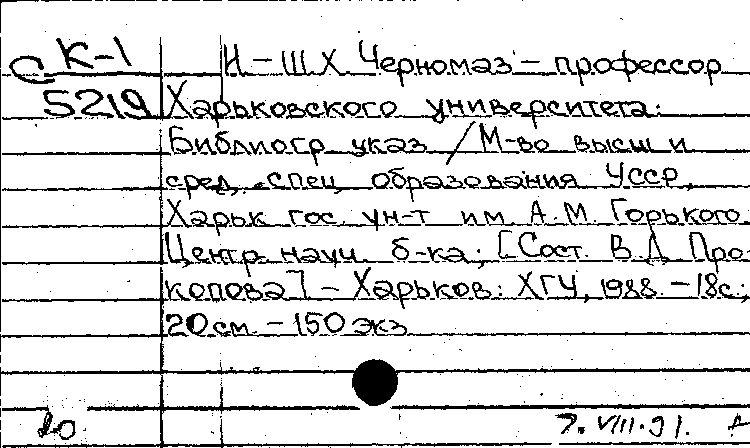 С К-1
5219
И-Ш Х Черномаз - профессор
Харьковского университета:
Библиогр указ / М-во высш и
сред. спец образования УССР,
Харьк гос. ун-т им. А.М. Горького
Центр. науч. б-ка; [Сост. В.Д. Про-
копова] - Харьков: ХГУ, 1988. - 18с.;
20 см. - 150 экз
7. VIII. 91.